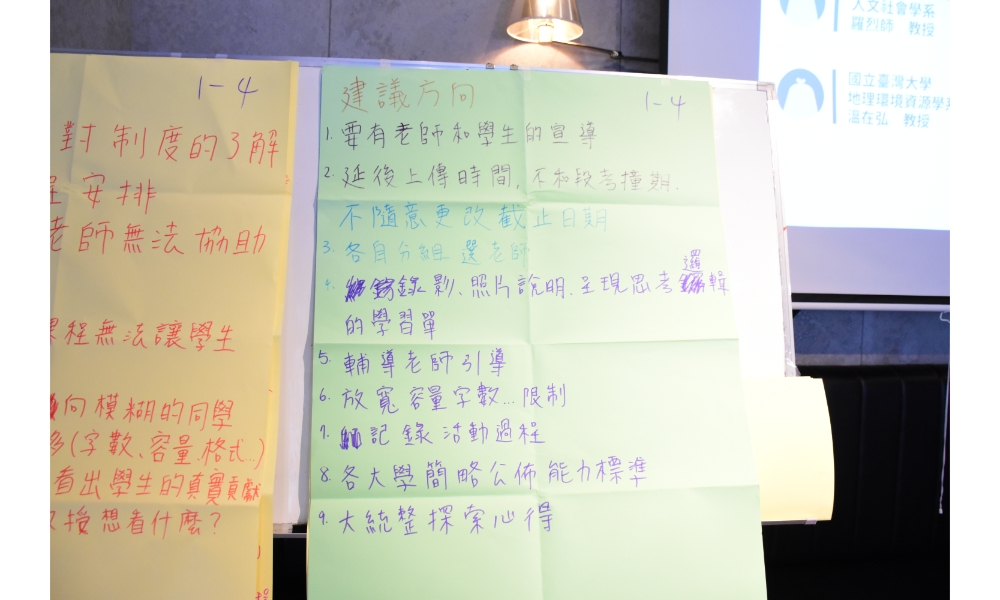 1-4
對制度的了解
安排
老師無法協助
課程無法讓學生
向模糊的同學
多(字數、容量、格式..)
看出學生的真實貢獻
教授想看什麼?
建議方向
1-4
1. 要有老師和學生的宣導
2. 延後上傳時間, 不和段考撞期.
不隨意更改截止日期
3. 各自分組 選老師
4. 錄影、照片說明、呈現思考邏輯
的學習單
5. 輔導老師引導
6. 放寬容量字數...限制
7. 記錄活動過程
8. 各大學簡略公佈能力標準
9. 大統整探索心得
人文社會學系
羅烈師 教授
國立臺灣大學
地理環境資源學系
溫在弘 教授